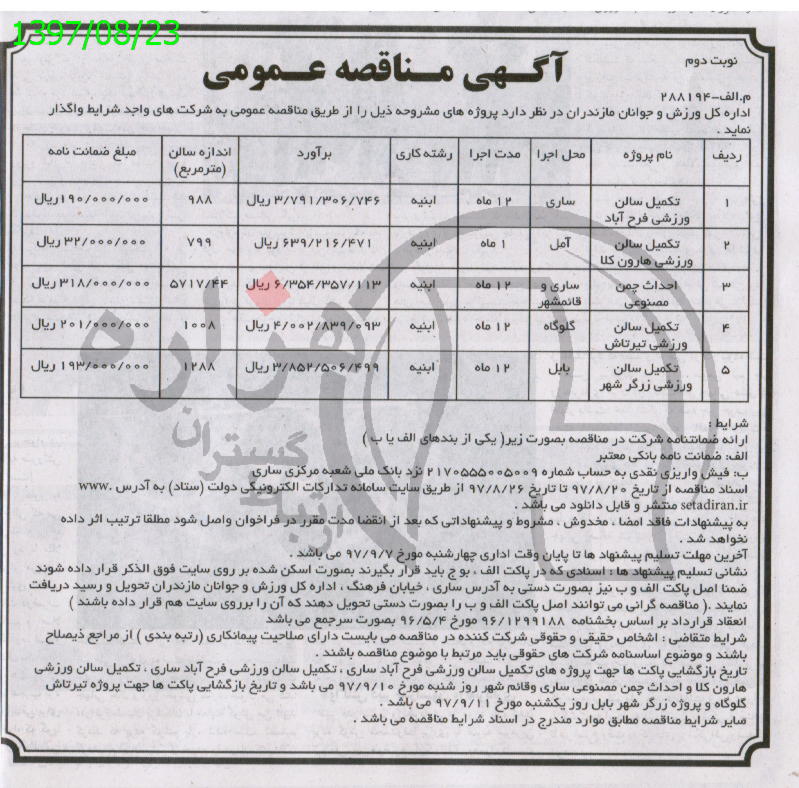 1397/08/23
نوبت دوم
آگهی مناقصه عمومی
م.الف-۲۸۸۱۹۴
اداره کل ورزش و جوانان مازندران در نظر دارد پروژه های مشروحه ذیل را از طریق مناقصه عمومی به شرکت های واجد شرایط واگذار
نماید .
ردیف نام پروژه محل اجرا مدت اجرا رشته کاری برآورد اندازه سالن (مترمربع) مبلغ ضمانت نامه
۱ تکمیل سالن ورزشی فرح آباد ساری ۱۲ ماه ابنیه ۳/۷۹۱/۳۰۶/۷۴۶ ریال ۹۸۸ ۱۹۰/۰۰۰/۰۰۰ ریال
۲ تکمیل سالن ورزشی هارون کلا آمل ۱ ماه ابنیه ۶۳۹/۲۱۶/۴۷۱ ریال ۷۹۹ ۳۲/۰۰۰/۰۰۰ ریال
۳ احداث چمن مصنوعی ساری و قائمشهر ۱۲ ماه ابنیه ۶/۳۵۴/۳۵۷/۱۱۳ ریال ۵۷۱۷/۴۴ ۳۱۸/۰۰۰/۰۰۰ ریال
۴ تکمیل سالن ورزشی تیرتاش گلوگاه ۱۲ ماه ابنیه ۴/۰۰۲/۸۳۹/۰۹۳ ریال ۱۰۰۸ ۲۰۱/۰۰۰/۰۰۰ ریال
۵ تکمیل سالن ورزشی زرگر شهر بابل ۱۲ ماه ابنیه ۳/۸۵۲/۵۰۶/۴۹۹ ریال ۱۲۸۸ ۱۹۳/۰۰۰/۰۰۰ ریال
شرایط :
ارائه ضمانتنامه شرکت در مناقصه بصورت زیر( یکی از بندهای الف یا ب )
الف: ضمانت نامه بانکی معتبر
ب: فیش واریزی نقدی به حساب شماره ۲۱۷۰۵۵۵۰۰۵۰۰۹ نزد بانک ملی شعبه مرکزی ساری
اسناد مناقصه از تاریخ ۹۷/۸/۲۰ تا تاریخ ۹۷/۸/۲۶ از طریق سایت سامانه تدارکات الکترونیکی دولت (ستاد) به آدرس .www
setadiran.ir منتشر و قابل دانلود می باشد .
به پیشنهادات فاقد امضا ، مخدوش ، مشروط و پیشنهاداتی که بعد از انقضا مدت مقرر در فراخوان واصل شود مطلقا ترتیب اثر داده
نخواهد شد .
آخرین مهلت تسلیم پیشنهاد ها تا پایان وقت اداری چهارشنبه مورخ ۹۷/۹/۷ می باشد .
نشانی تسلیم پیشنهاد ها : اسنادی که در پاکت الف ، ب و ج باید قرار بگیرند بصورت اسکن شده بر روی سایت فوق الذکر قرار داده شوند
ضمنا اصل پاکت الف و ب نیز بصورت دستی به آدرس ساری ، خیابان فرهنگ ، اداره کل ورزش و جوانان مازندران تحویل و رسید دریافت
نمایند .( مناقصه گرانی می توانند اصل پاکت الف و ب را بصورت دستی تحویل دهند که آن را برروی سایت هم قرار داده باشند )
انعقاد قرارداد بر اساس بخشنامه ۹۶/۱۲۹۹۱۸۸ مورخ ۹۶/۵/۴ بصورت سرجمع می باشد
شرایط متقاضی : اشخاص حقیقی و حقوقی شرکت کننده در مناقصه می بایست دارای صلاحیت پیمانکاری (رتبه بندی ) از مراجع ذیصلاح
باشند و موضوع اساسنامه شرکت های حقوقی باید مرتبط با موضوع مناقصه باشند .
تاریخ بازگشایی پاکت ها جهت پروژه های تکمیل سالن ورزشی فرح آباد ساری ، تکمیل سالن ورزشی فرح آباد ساری ، تکمیل سالن ورزشی
هارون کلا و احداث چمن مصنوعی ساری وقائم شهر روز شنبه مورخ ۹۷/۹/۱۰ می باشد و تاریخ بازگشایی پاکت ها جهت پروژه تیرتاش
گلوگاه و پروژه زرگر شهر بابل روز یکشنبه مورخ ۹۷/۹/۱۱ می باشد .
سایر شرایط مناقصه مطابق موارد مندرج در اسناد شرایط مناقصه می باشد .
هزاره
گستران